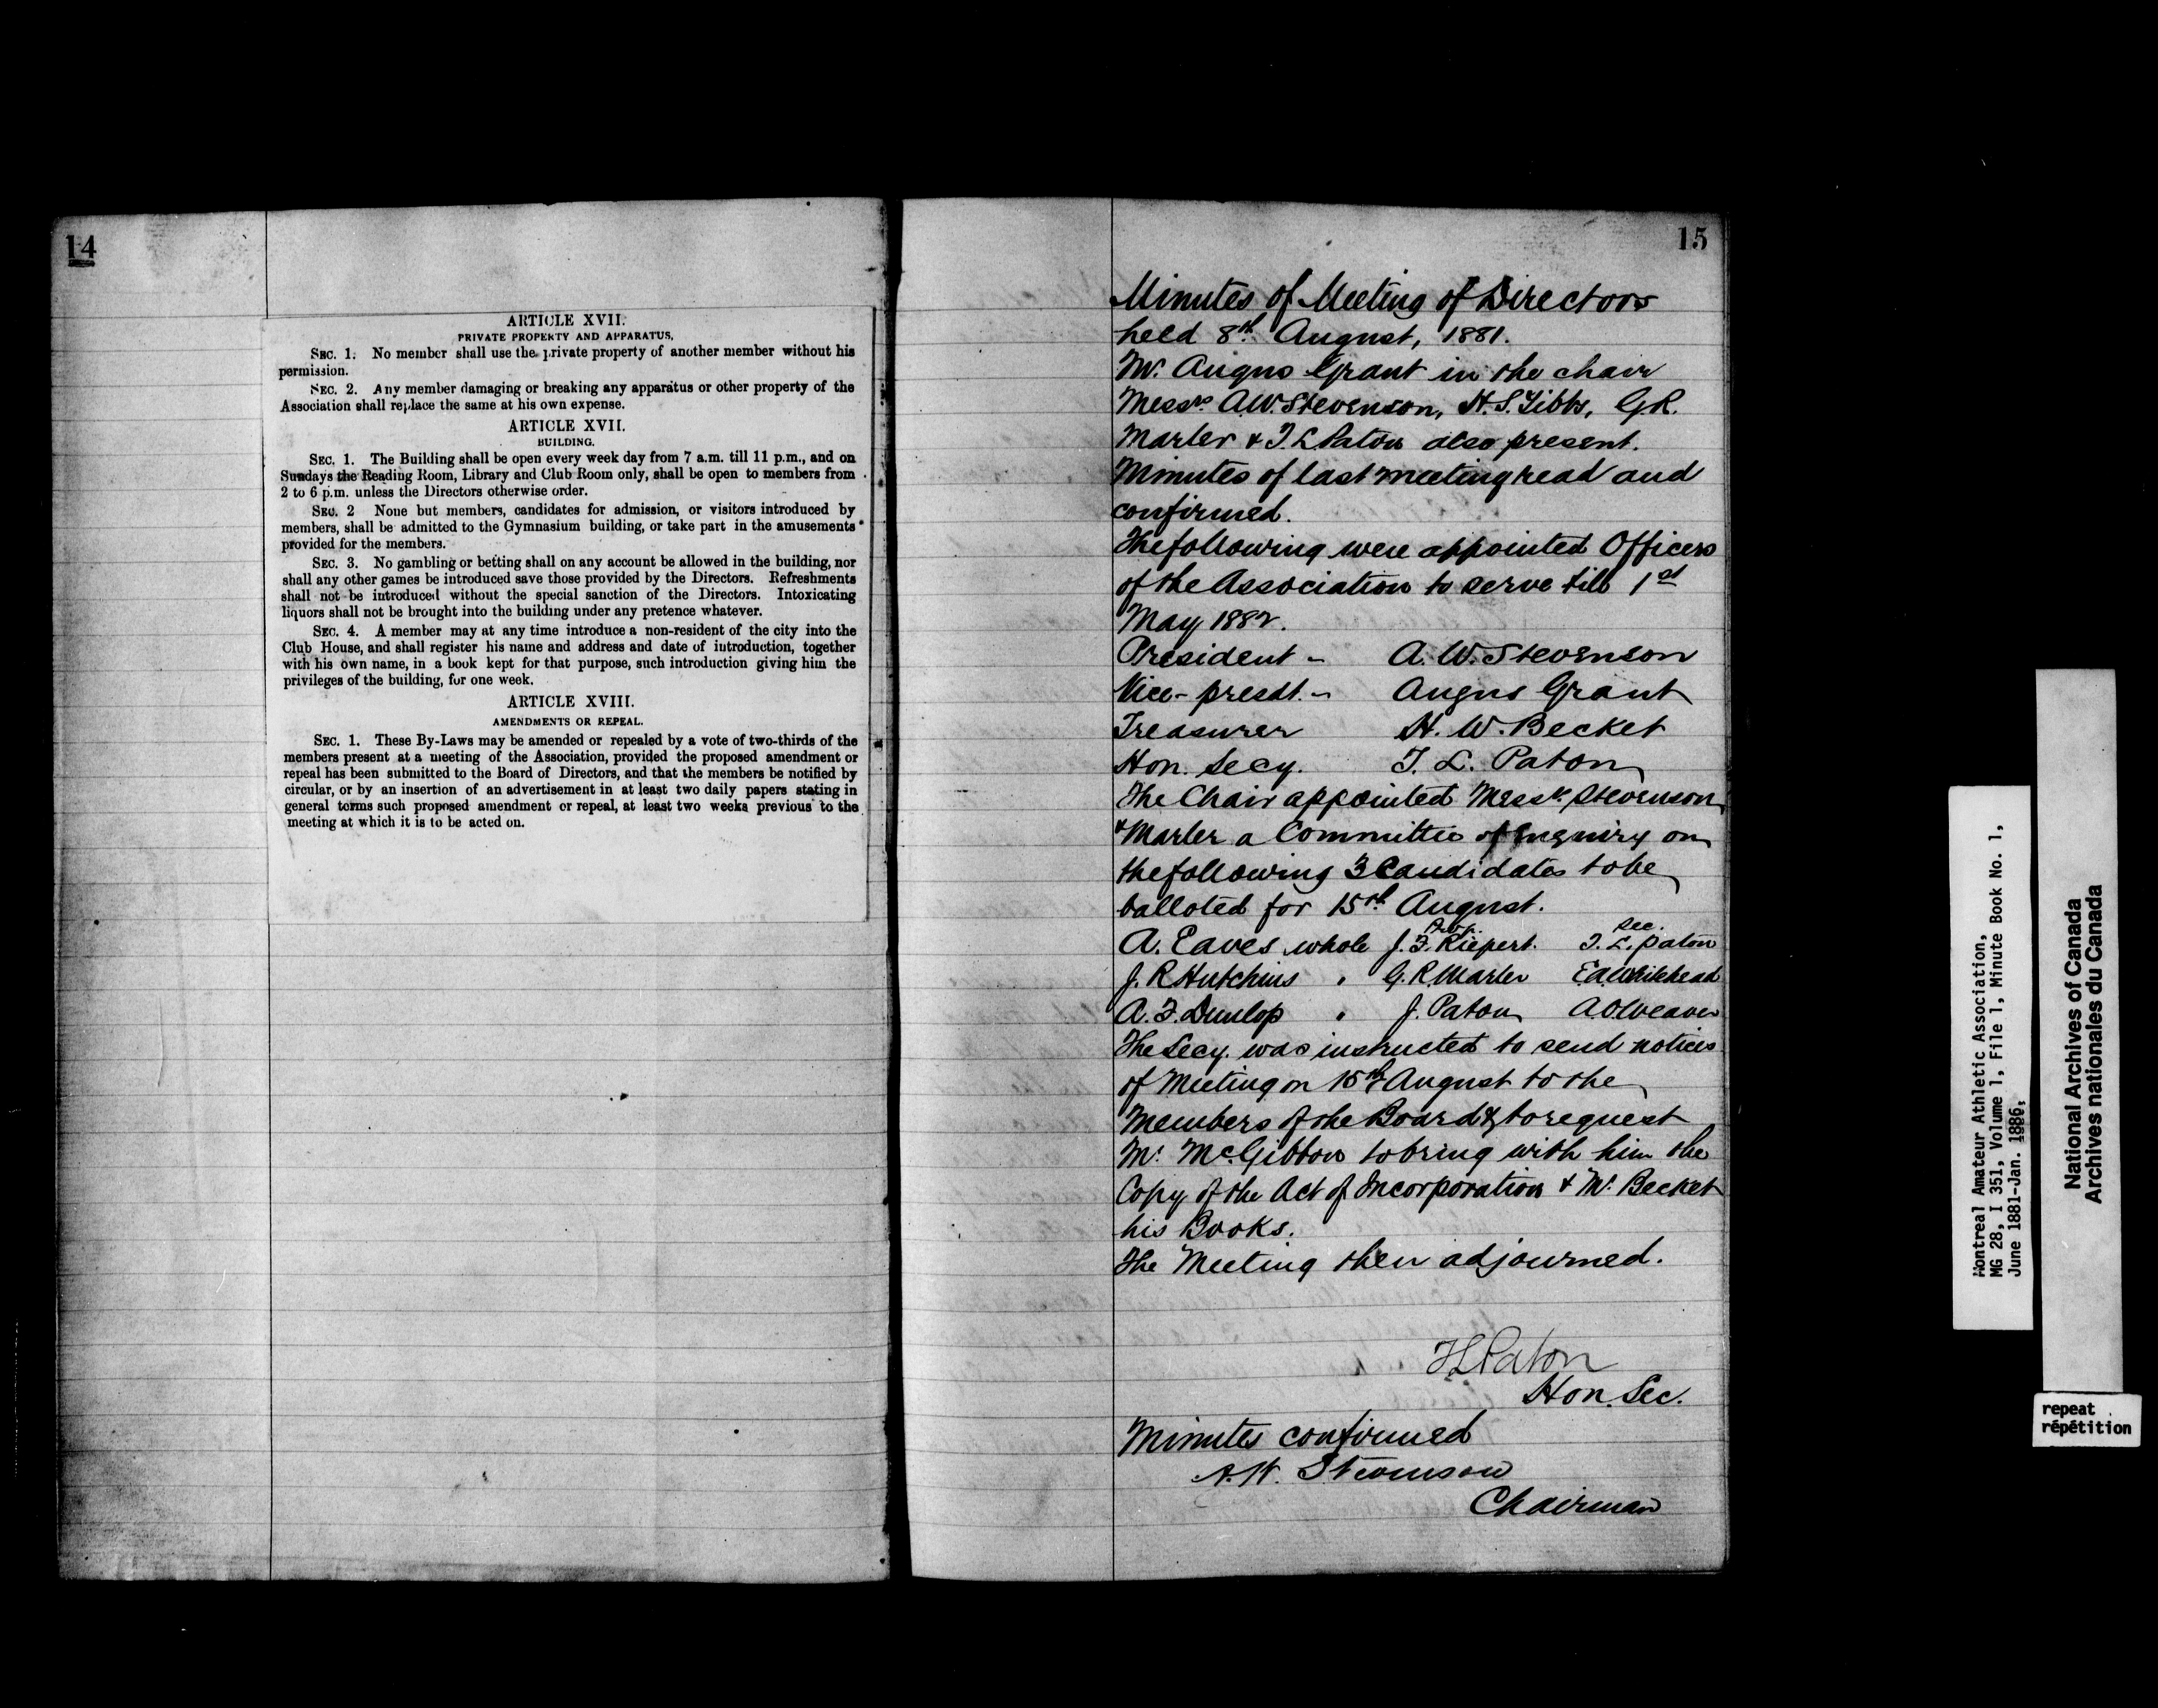 14
ARTICLE XVII.
PRIVATE PROPERTY AND APPARATUS.
SEC. 1. No member shall use the private property of another member without his
permission.
SEC. 2. Any member damaging or breaking any apparatus or other property of the
Association shall replace the same at his own expense.
ARTICLE XVII.
BUILDING.
SEC. 1. The Building shall be open every week day from 7 a.m. till 11 p.m., and on
Sundays the Reading Room, Library and Club Room only, shall be open to members from
2 to 6 p.m. unless the Directors otherwise order.
SEC. 2 None but members, candidates for admission, or visitors introduced by
members, shall be admitted to the Gymnasium building, or take part in the amusements
provided for the members.
SEC. 3. No gambling or betting shall on any account be allowed in the building, nor
shall any other games be introduced save those provided by the Directors. Refreshments
shall not be introduced without the special sanction of the Directors. Intoxicating
liquors shall not be brought into the building under any pretence whatever.
SEC. 4. A member may at any time introduce a non-resident of the city into the
Club House, and shall register his name and address and date of introduction, together
with his own name, in a book kept for that purpose, such introduction giving him the
privileges of the building, for one week.
ARTICLE XVIII.
AMENDMENTS OR REPEAL.
SEC. 1. These By-Laws may be amended or repealed by a vote of two-thirds of the
members present at a meeting of the Association, provided the proposed amendment or
repeal has been submitted to the Board of Directors, and that the members be notified by
circular, or by an insertion of an advertisement in at least two daily papers stating in
general terms such proposed amendment or repeal, at least two weeks previous to the
meeting at which it is to be acted on.
15
Minutes of Meeting of Directors
held 8th August, 1881.
Mr. Angus Grant in the chair
Messrs. A.W. Stevenson, H.S. Tibbs, G.R.
Marler & T. L. Paton also present.
Minutes of last meeting read and
confirmed.
The following were appointed Officers
of the Association to serve till 1st
May 1882.
President - A. W. Stevenson
Vice-presdt. - Angus Grant
Treasurer H. W. Becket
Hon. Secy. T. L. Paton
The Chair appointed Messrs. Stevenson
& Marler a Committee of Enquiry on
the following 3 Candidates to be
balloted for 15th August.
Sec.
A. Eaves whole J. F. Riepert. T. L. Paton
J. R. Hutchins " G. R. Marler E.A. Whitehead
A. F. Dunlop " J. Paton A. O. Weaver
The Secy. was instructed to send notices
of Meeting on 15th August to the
Members of the Board & to request
Mr. McGibbon to bring with him the
Copy of the Act of Incorporation & Mr. Becket
his Books.
The Meeting then adjourned.
T L Paton
Hon. Sec.
Minutes confirmed
A. W. Stevenson
Chairman
Montreal Amateur Athletic Association,
MG 28, I 351, Volume 1, File 1, Minute Book No. 1,
June 1881-Jan. 1886,
National Archives of Canada
Archives nationales du Canada
repeat
répétition